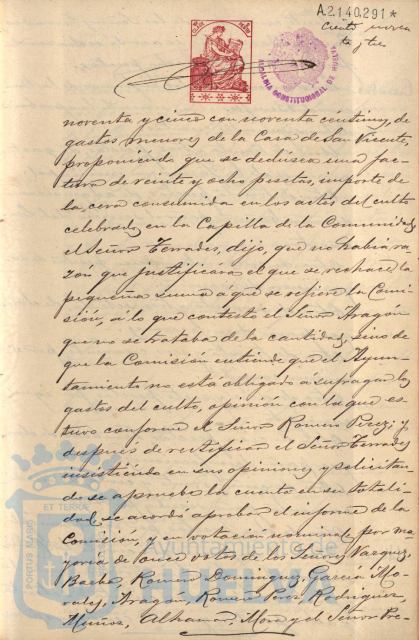 A.2.140,291*
Ciento noven
ta y tres
ALCALDIA CONSTITUCIONAL DE HUELVA
noventa y cinco con noventa céntims, de
gastos menores de la Casa de San Vicente,
proponiendo que se dedujera una fac-
tura de veinte y ocho pesetas, importe de
la cera consumida en los actos del culto
celebrados en la Capilla de la Comunidad,
el Señor Terrades, dijo, que no habia ra-
zón que justificara el que se rechace la
pequeña suma á que se refiere la Comi-
sión, á lo que contestó el Señor Aragón
que no se trataba de la cantidad, sino de
que la Comisión entiende que el Ayun-
tamiento no está obligado á sufragar los
gastos del culto, opinión con la que es-
tuvo conforme el Señor Romero Perez; y
despues de rectificar el Señor Terrades
insistiendo en sus opiniones y solicitan-
do se apruebe la cuenta en su totali-
dad, se acordó aprobar el informe de la
Comision, y en votación nominal por ma-
yoria de once votos de los Señores Vazquez,
Barba, Romero Dominguez, Garcia Mo-
rales, Aragón, Romero Perez, Rodriguez,
Muñoz, Alhamar, Mora y el Señor Pre-
PORTUS MARIS
ET TERRAE
Ayuntamiento de
HUELVA